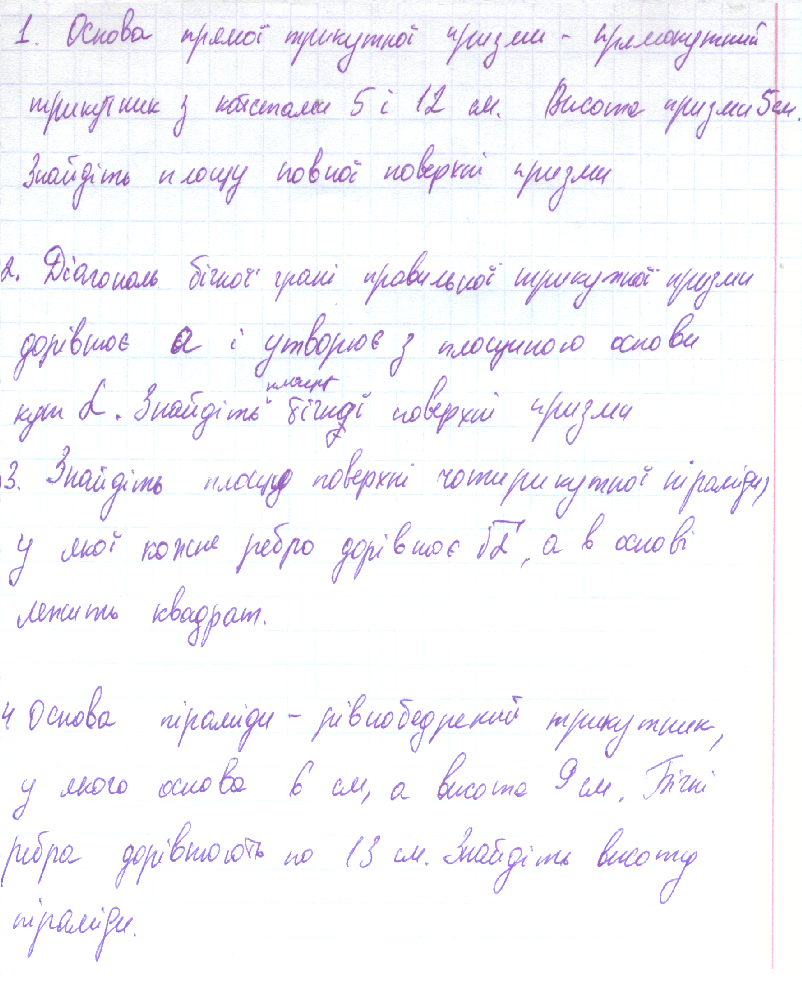 1. Основа прямої трикутної призми - прямокутний
трикутник з катетами 5 і 12 см. Висота призми 5 см.
Знайдіть площу повної поверхні призми
2. Діагональ бічної грані правильної трикутної призми
дорівнює a і утворює з площиною основи
кут α. Знайдіть площу бічної поверхні призми
3. Знайдіть площу поверхні чотирикутної піраміди,
у якої кожне ребро дорівнює √2, а в основі
лежить квадрат.
4 Основа піраміди - рівнобедрений трикутник,
у якого основа 6 см, а висота 9 см. Бічні
ребра дорівнюють по 13 см. Знайдіть висоту
піраміди.